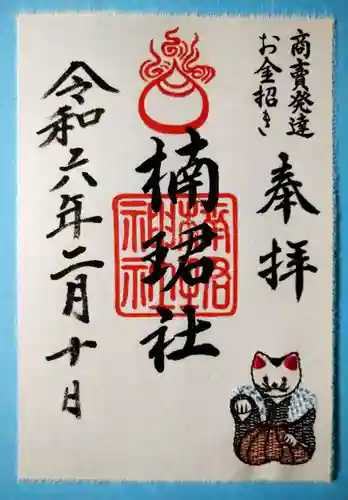 商賣発達
お金招き
奉拝
楠珺社
楠珺社神社
令和六年二月十日